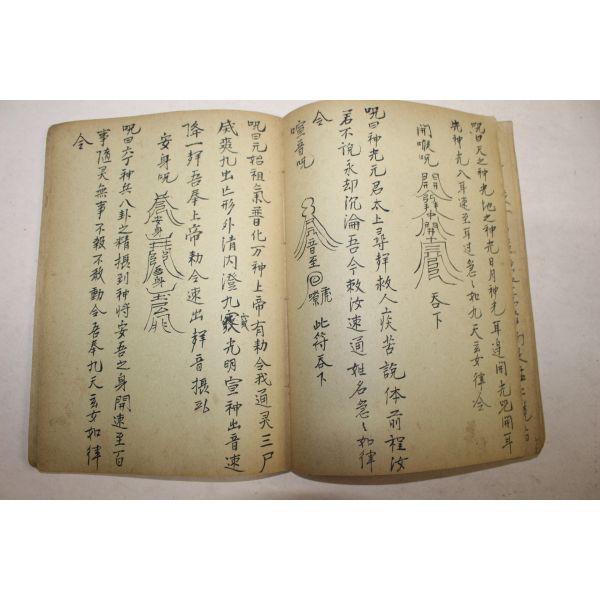 咒曰天之神光地之神光日月神光耳边開光咒開耳
光神光入耳速至耳边急々如九天玄女律令
開喉咒 吞下
咒曰神光元君太上尋拜救人疾苦說体前程汝
若不說永却沉淪吾今敕汝速通姓名急々如律
令
喧音咒 此符吞下
咒曰元始祖氣普化万神上帝有勅令我通灵三尸
九出亡形外清内澄九竅光明宣神出音速
降一拜吾奉上帝勅令速出拜音攝
安身咒
咒曰六丁神兵八卦之精攝到神将安吾之身開速至百
事隨灵無事不報不敢動令吾奉九天玄女如律
令